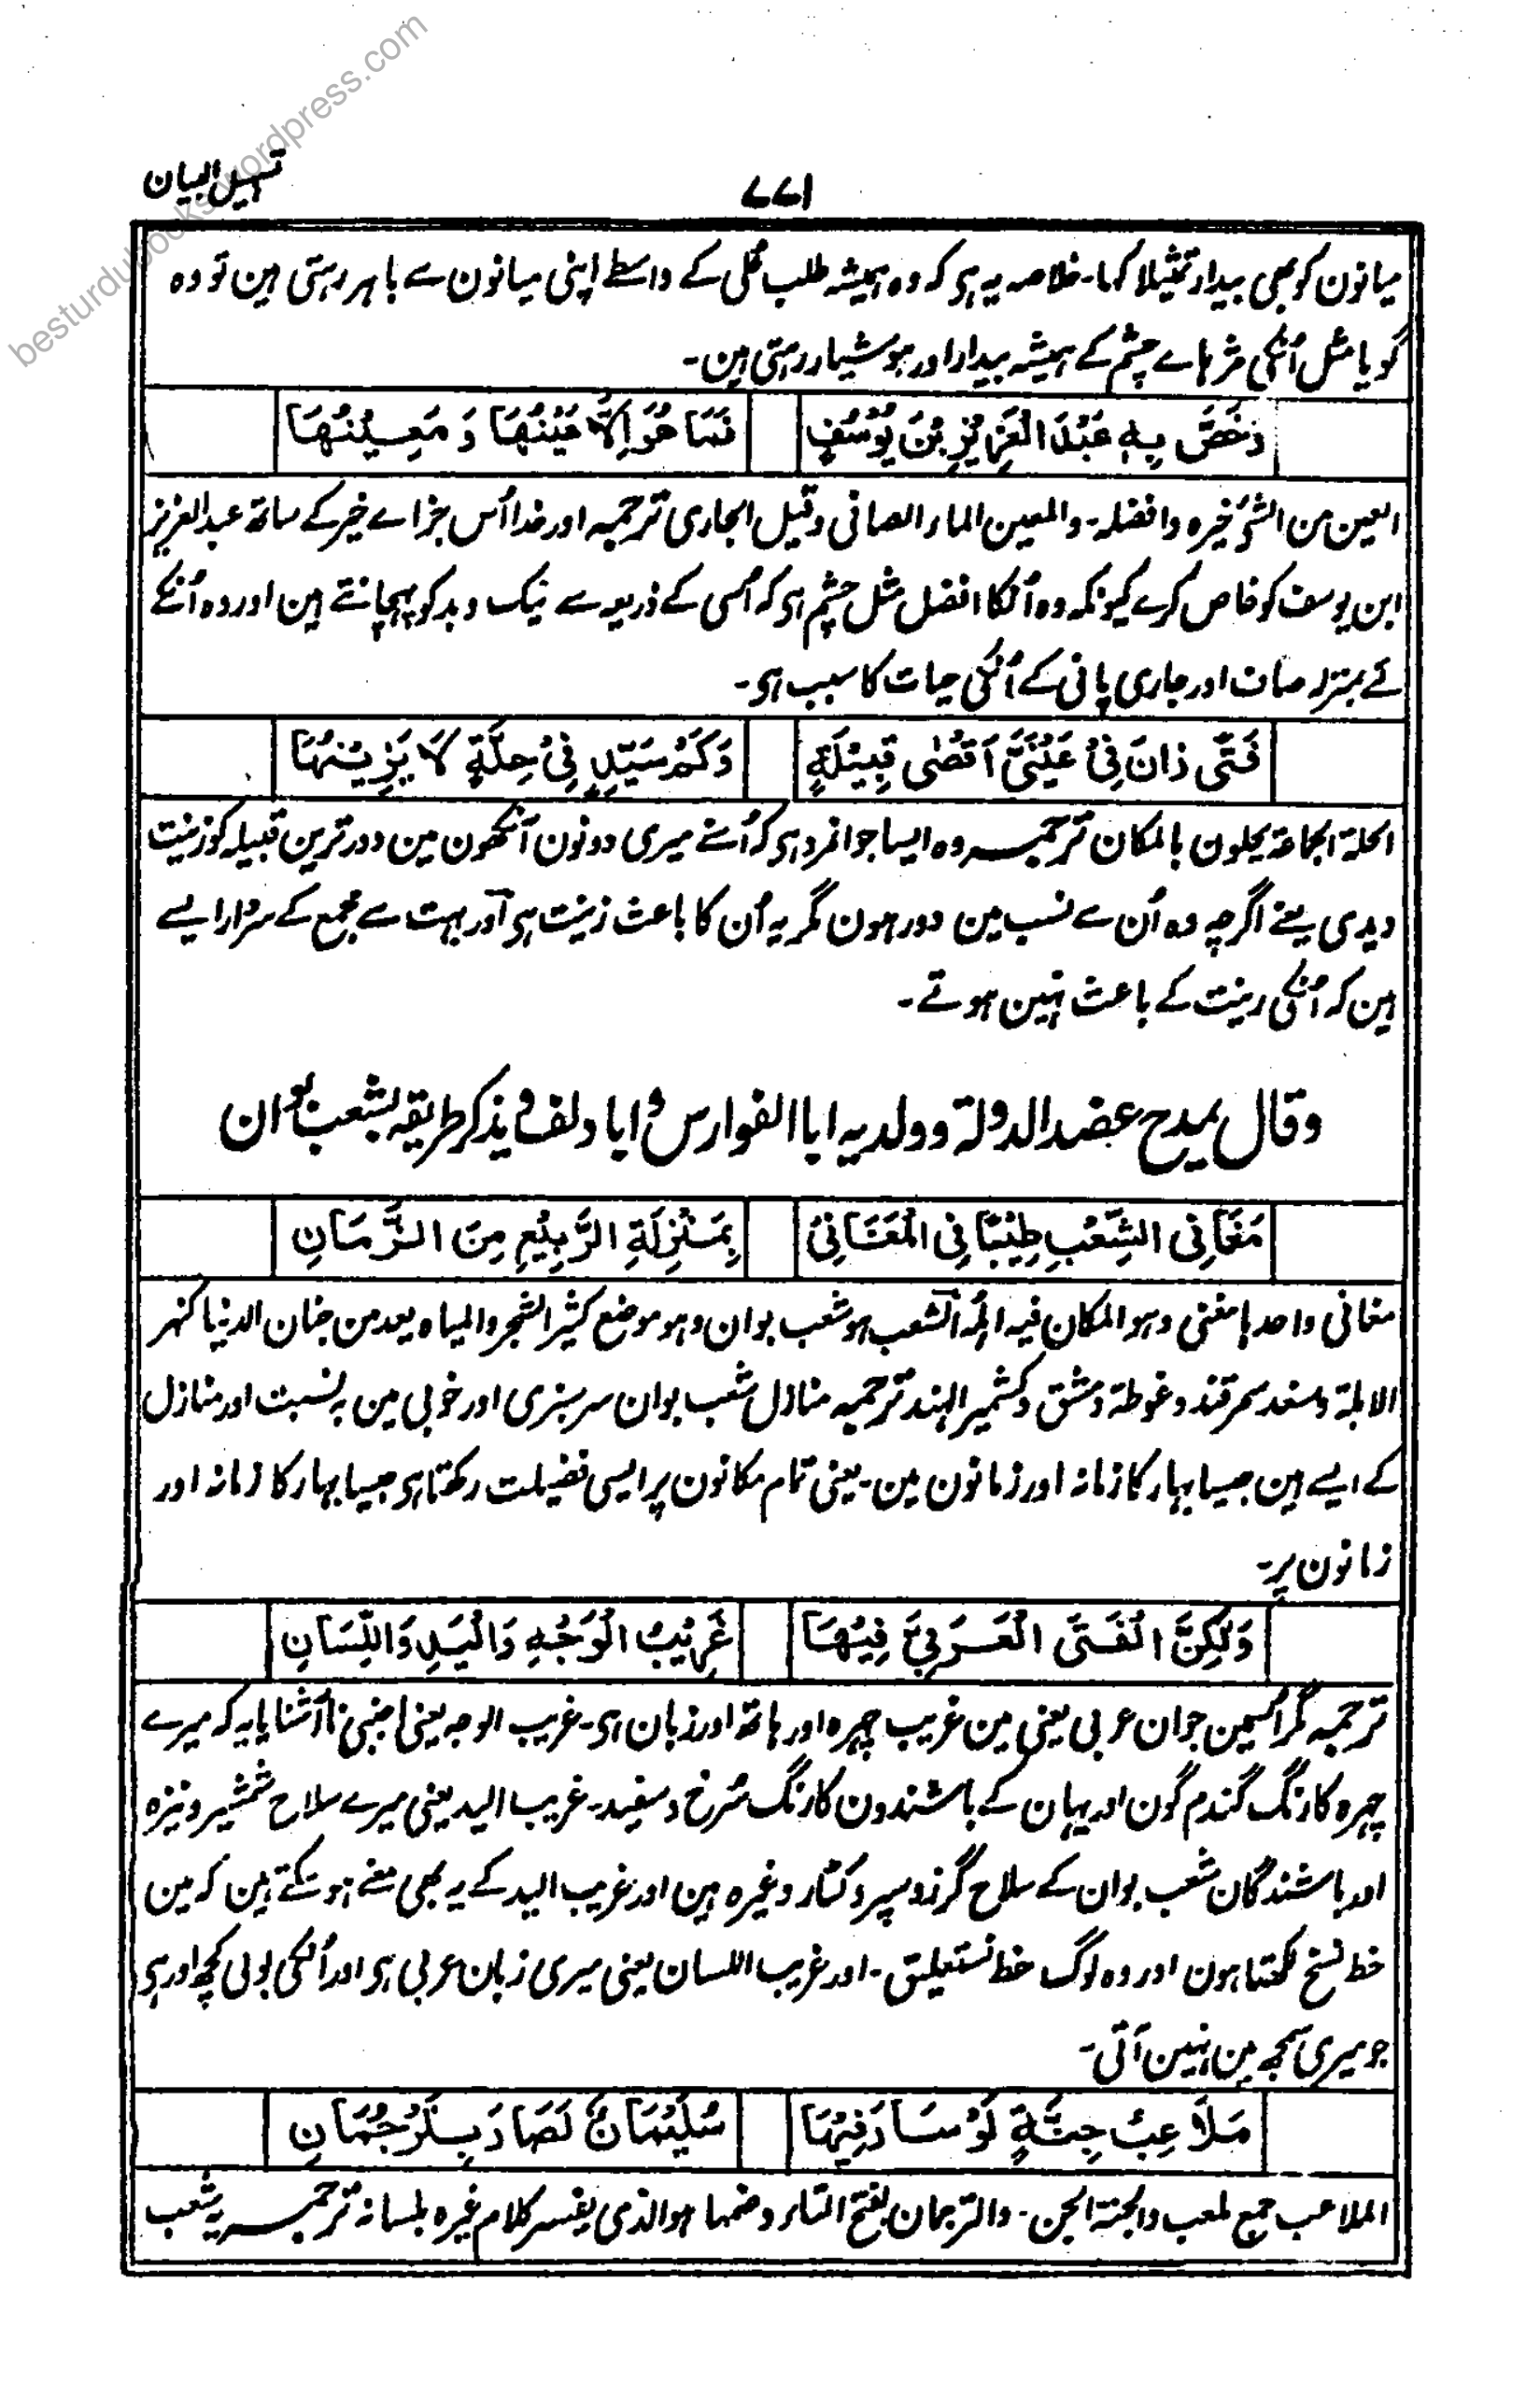 besturdubooks.wordpress.com
تسہیل البیان
۷۷۱
میانون کو بھی بیدار تمثیلا کہا۔ خلاصہ یہ ہی کہ وہ ہمیشہ طلب کے واسطے اپنی میانون سے باہر رہتی ہین تو وہ
گویا مثل اُنکی مژہاے چشم کے ہمیشہ بیدار اور ہوشیار رہتی ہین۔
وَخَصَّ بِهٖ عَبْدَ الْعَزِيْزِ بْنَ يُوْسُفٍ فَمَا هُوَ اِلَّا عَيْنُهَا وَ مَعِيْنُهَا
العین من الشئ خیرہ وافضلہ۔ والمعین الماء الصافی وقیل الجاری ترجمہ اور خدا اُس جزاے خیر کے ساتھ عبدالعزیز
ابن یوسف کو خاص کرے کیونکہ وہ اُنکا افضل مثل چشم ہی کہ اُسی کے ذریعہ سے نیک و بد کو پہچانتے ہین اور وہ اُنکے
لئے بمنزلہ صاف اور جاری پانی کے اُنکی حیات کا سبب ہی۔
فَتًى زَانَ فِيْ عَيْنَيَّ اَقْصٰى قَبِيْلَةٍ وَكَمْ سَيِّدٍ فِيْ حِلَّةٍ لَا يَزِيْنُهَا
الحلة الجماعة یحلون بالمکان ترجمہ وہ ایسا جوانمرد ہی کہ اُسنے میری دونون آنکھون مین دور ترین قبیلہ کو زینت
دیدی یعنے اگرچہ وہ اُن سے نسب مین دور ہون مگر یہ اُن کا باعث زینت ہی اور بہت سے مجمع کے سردار ایسے
ہین کہ اُنکی زینت کے باعث نہین ہوتے۔
وقال یمدح عضد الدولة وولدیہ ابا الفوارس و ابا دلف و یذکر طریقہ بشعب بوان
مَغَانِي الشِّعْبِ طِيْبًا فِي الْمَغَانِيْ بِمَنْزِلَةِ الرَّبِيْعِ مِنَ الزَّمَانِ
مغانی واحدہا مغنی وہو المکان فیہ اہلہ الشعب ہو شعب بوان وہو موضع کثیر الشجر والمیاہ یعد من جنان الدنیا کنہر
الابلة وسغد سمرقند وغوطة دمشق وکشمیر الہند ترجمہ منازل شعب بوان سرسبزی اور خوبی مین بہ نسبت اور منازل
کے ایسے ہین جیسا بہار کا زمانہ اور زمانون مین۔ یعنی تمام مکانون پر ایسی فضیلت رکھتا ہی جیسا بہار کا زمانہ اور
زمانون پر۔
وَلٰكِنَّ الْفَتَى الْعَرَبِيَّ فِيْهَا غَرِيْبُ الْوَجْهِ وَالْيَدِ وَاللِّسَانِ
ترجمہ مگر اُسمین جوان عربی یعنی مین غریب چہرہ اور ہاتھ اور زبان ہی۔ غریب الوجہ یعنی اجنبی ناآشنا یا یہ کہ میرے
چہرہ کا رنگ گندم گون اور یہان کے باشندون کا رنگ سُرخ و سفید۔ غریب الید یعنی میرے سلاح شمشیر و نیزہ
اور باشندگان شعب بوان کے سلاح گرز و سپر و کٹار وغیرہ ہین اور غریب الید کے یہ بھی معنے ہو سکتے ہین کہ مین
خط نسخ لکھتا ہون اور وہ لوگ خط نستعلیق۔ اور غریب اللسان یعنی میری زبان عربی ہی اور اُنکی بولی کچھ اور ہی
جو میری سمجھ مین نہین آتی۔
مَلَاعِبُ جِنَّةٍ لَوْ سَارَ فِيْهَا سُلَيْمَانُ لَسَارَ بِتَرْجُمَانِ
الملاعب جمع ملعب والجنة الجن۔ والترجمان بفتح التاء وضمہا ہو الذی یفسر کلام غیرہ بلسانہ ترجمہ یہ شعب